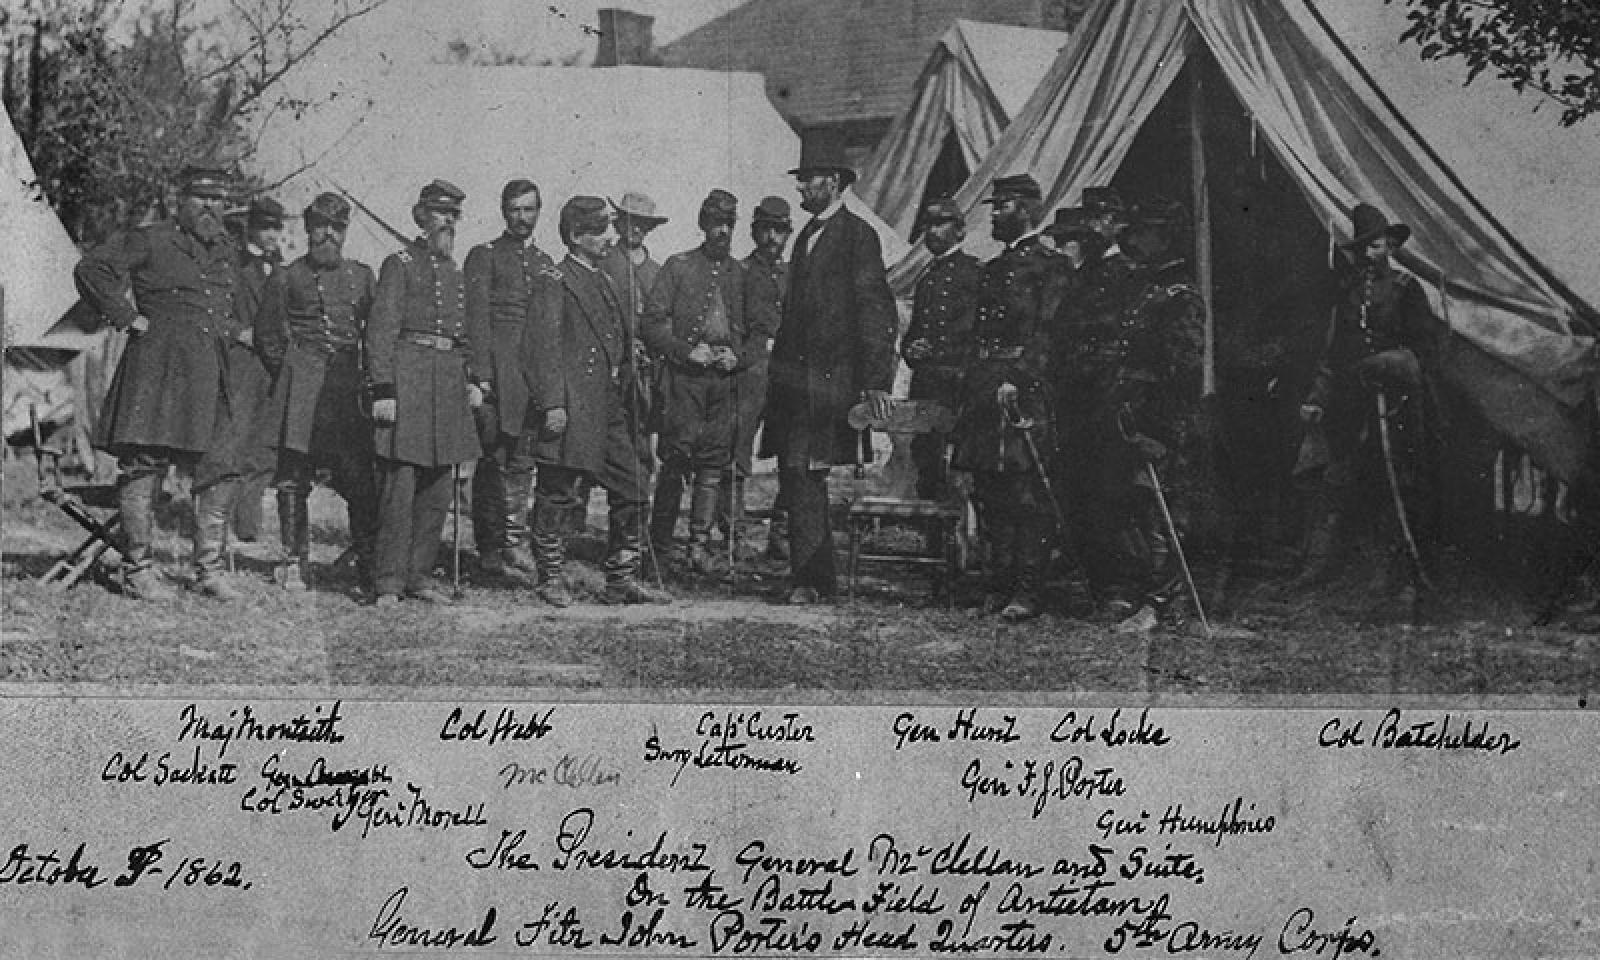 Maj Montieth Col Webb Capt Custer Gen Hunt Col Locke Col Batchelder
Col Sackett Gen McClellan Surg Letterman Gen F. J. Porter
Col Sweitzer Gen Morell Gen Humphries
October 3d 1862. The President, General McClellan and Suite.
On the Battle Field of Antietam,
General Fitz John Porter's Head Quarters. 5th Army Corps.